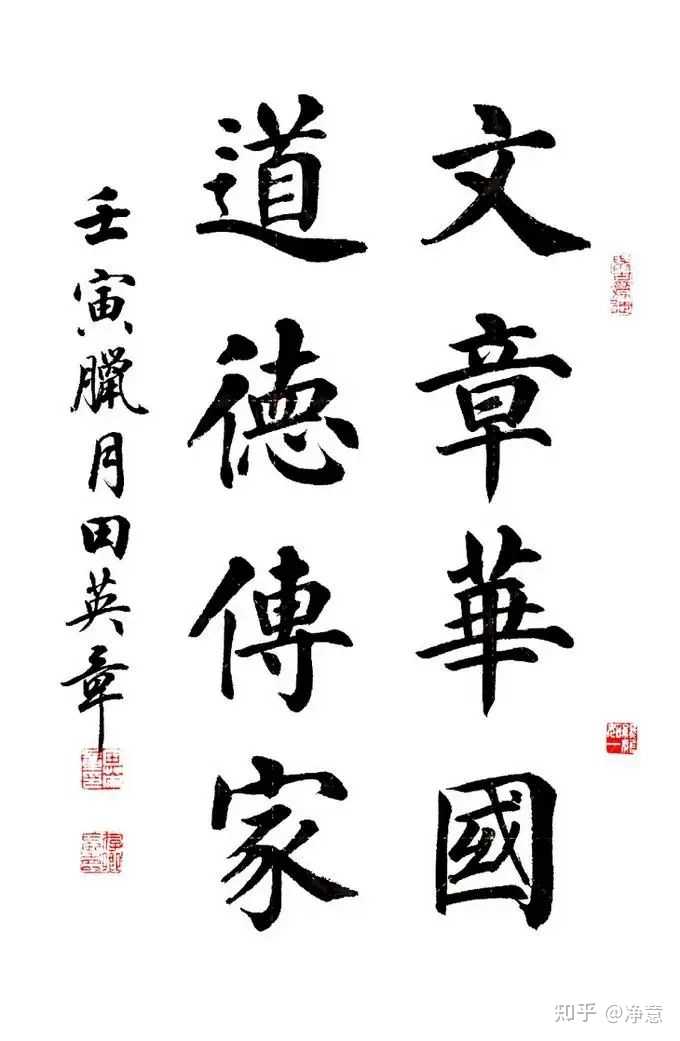 文章華國
道德傳家
壬寅臘月田英章
知乎 @净意